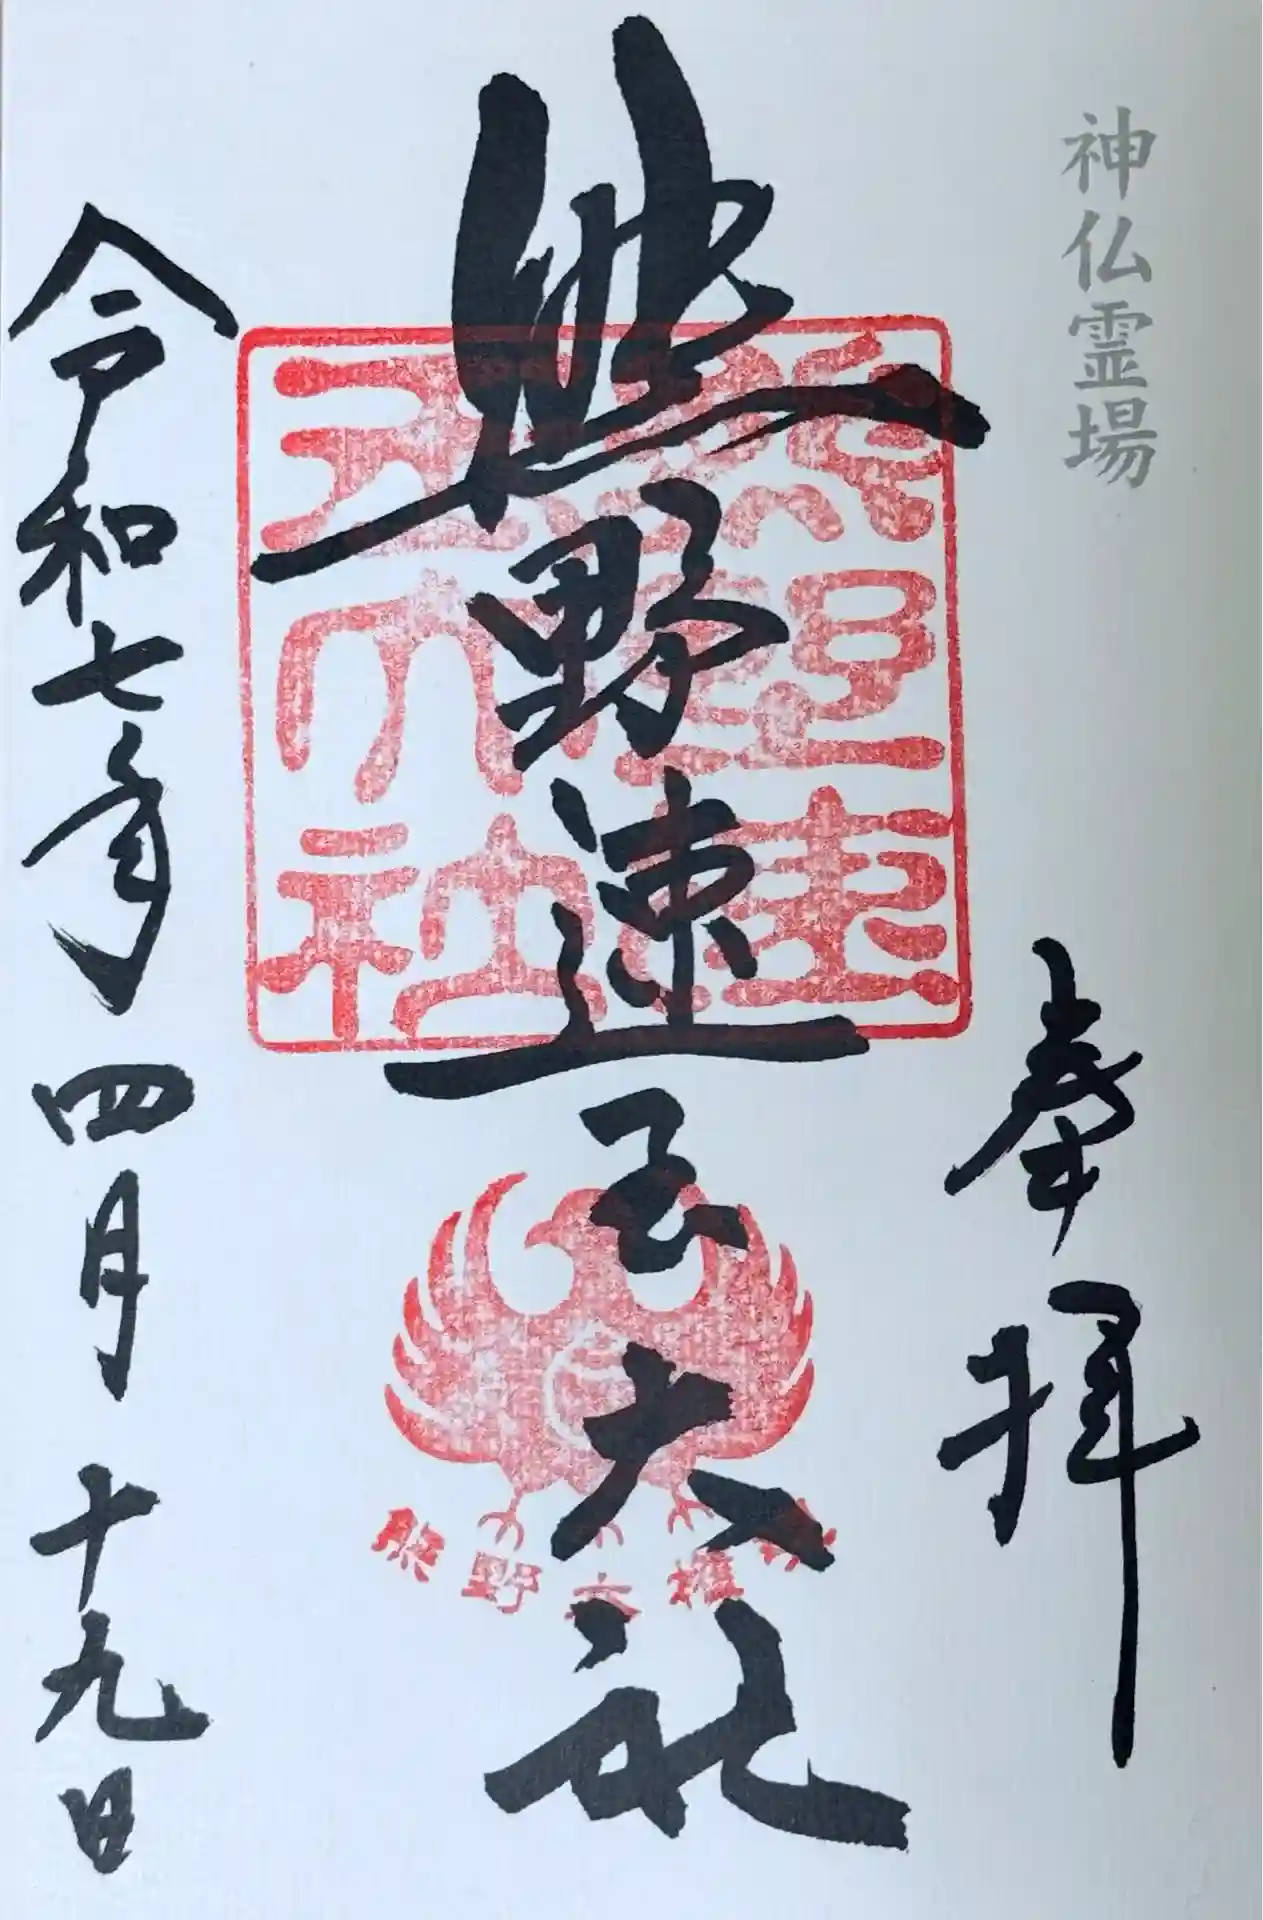 神仏霊場
奉拝
熊野速玉大社
熊野速玉大社
熊野大権現
令和七年四月十九日